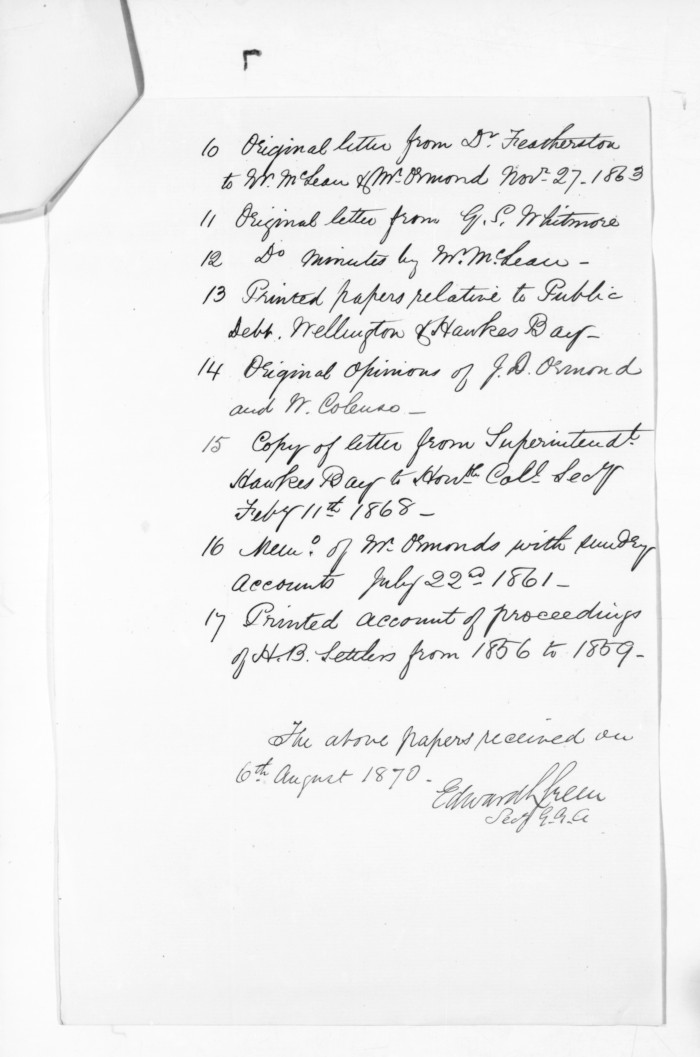 10 Original letter from Dr. Featherston
to Mr. McLean & Mr. Ormond Novr. 27. 1863
11 Original letter from G. S. Whitmore
12 Do minutes by Mr. McLean –
13 Printed papers relative to Public
Debt. Wellington & Hawkes Bay –
14 Original Opinions of J. D. Ormond
and W. Colenso –
15 Copy of letter from Superintendt.
Hawkes Bay to Honble Coll. Secy
Feby 11th 1868 –
16 Memo. of Mr. Ormonds with sundry
accounts July 22nd 1861 –
17 Printed account of proceedings
of H.B. Settlers from 1856 to 1859 –
The above papers received on
6th August 1870 –
Edward Green
Secy G.G.A